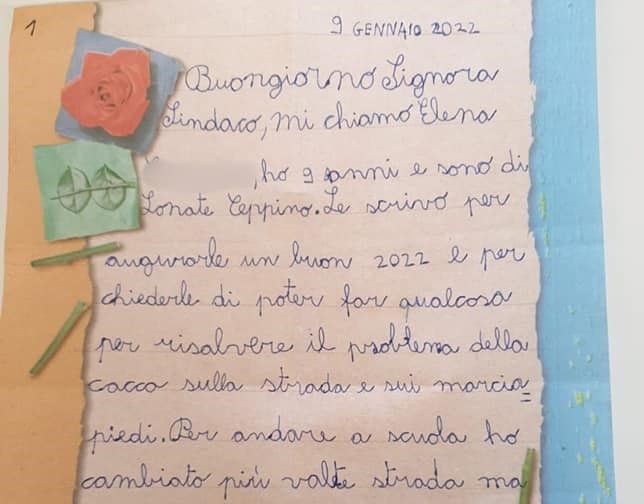 1
9 GENNAIO 2022
Buongiorno Signora
Sindaco, mi chiamo Elena
, ho 9 anni e sono di
Lonate Ceppino. Le scrivo per
augurarle un buon 2022 e per
chiederle di poter far qualcosa
per risolvere il problema della
cacca sulla strada e sui marcia
piedi. Per andare a scuola ho
cambiato più volte strada ma